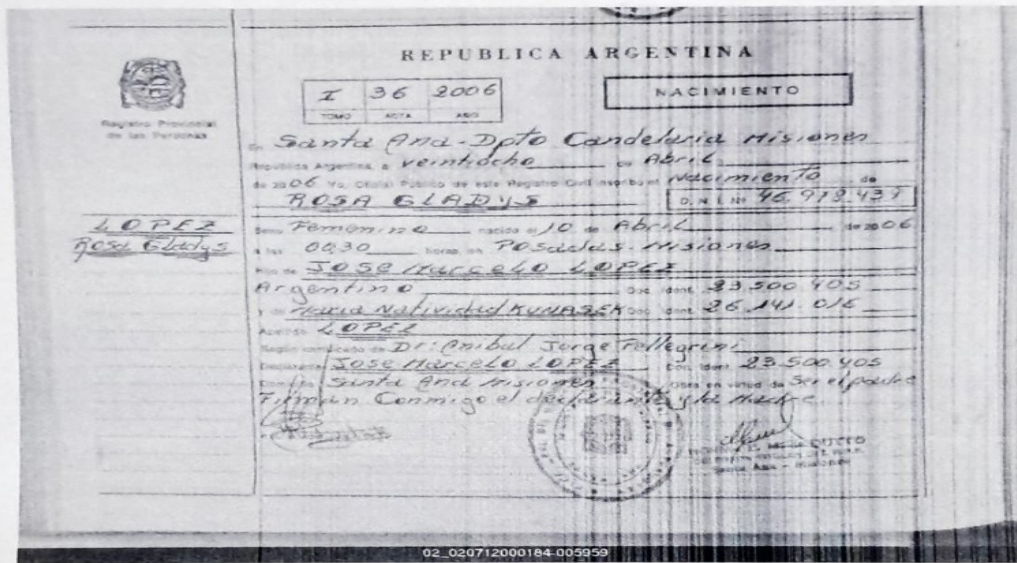 REPUBLICA ARGENTINA
I 36 2006
TOMO ACTA AÑO
NACIMIENTO
Registro Provincial
de las Personas
En Santa Ana - Dpto Candelaria Misiones
República Argentina, a veintiocho de Abril
de 2006 Yo, Oficial Público de este Registro Civil inscribo el Nacimiento de
ROSA GLADYS D.N.I. Nº 46.918.437
LOPEZ
Rosa Gladys
Sexo Femenino nacido el 10 de Abril de 2006
a las 00,30 horas, en Posadas - Misiones
Hijo de JOSE Marcelo LOPEZ
Argentino Doc. Ident. 23.500.405
y de Maria Natividad KUNASEK Doc. Ident. 26.141.016
Apellido LOPEZ
Según certificado de Dr: Anibal Jorge Pellegrini
Declarante Jose Marcelo LOPEZ Doc. Ident. 23.500.405
Domicilio Santa Ana Misiones Obra en virtud de Ser el padre
Firman Conmigo el declarante y la Madre
Santa Ana - Misiones
02_020712000184-005959